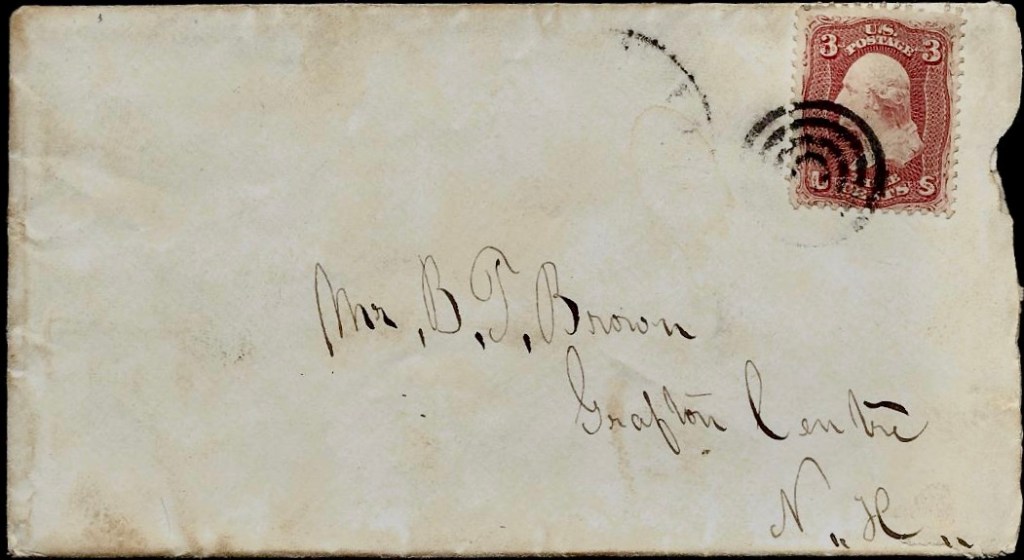 3 U.S. 3
POSTAGE
CENTS S
Mr, B, T, Brown
Grafton Centre
N. H.